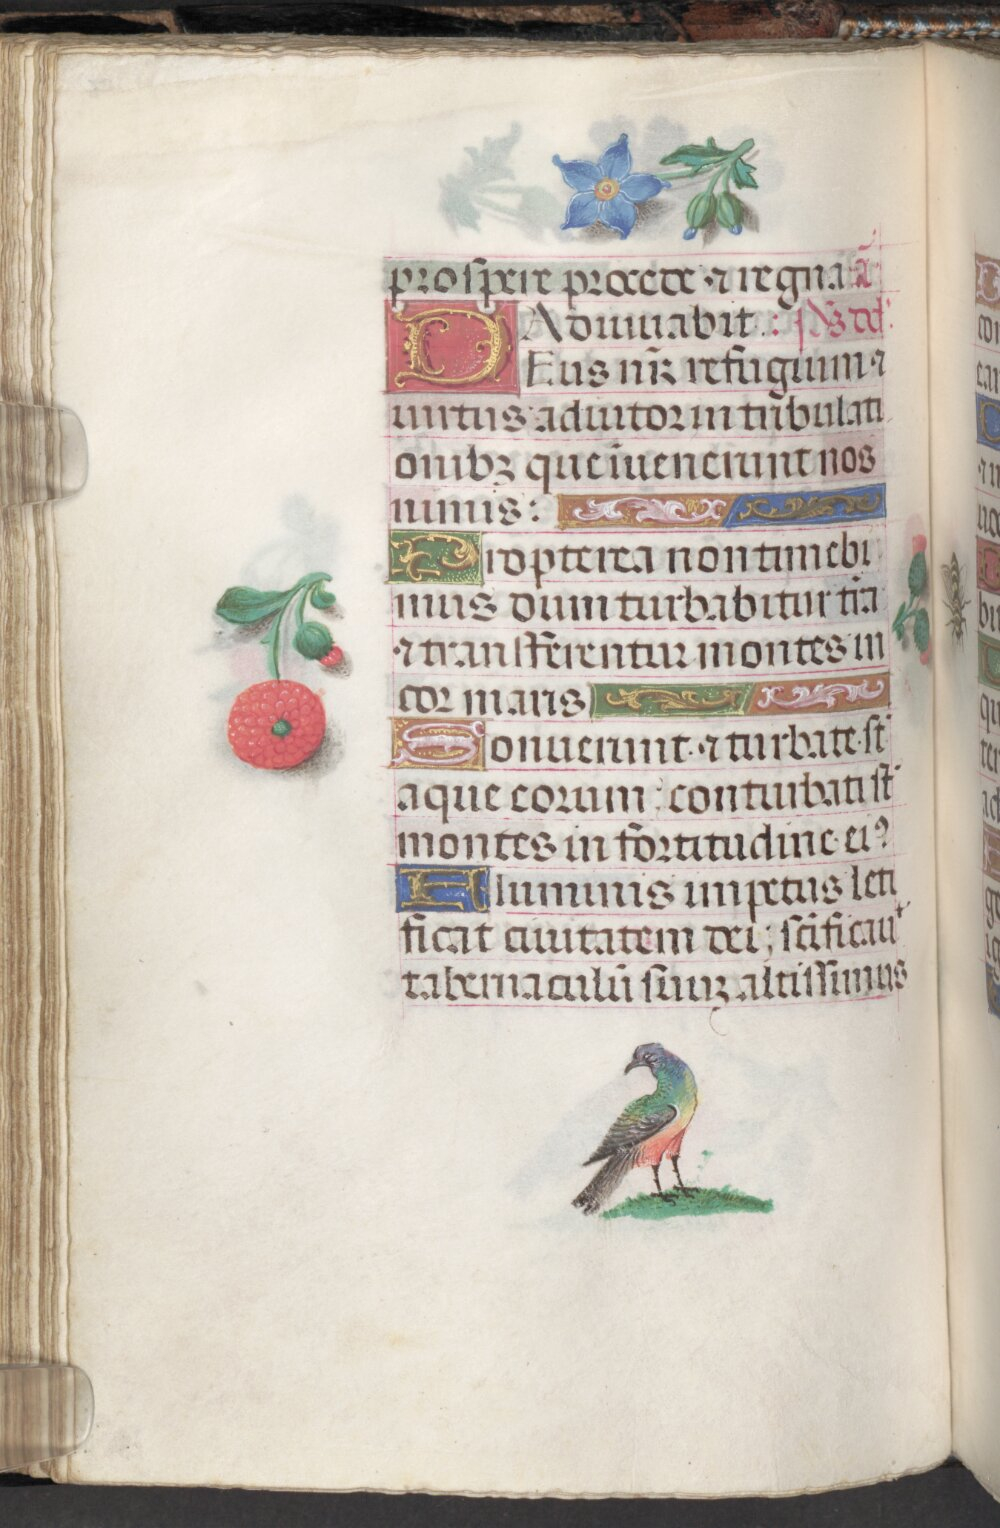 prospere procede ⁊ regna a͞
Adiuuabit: ps dd'
DEus nr̄ refugium ⁊
uirtus: adiutor in tribulati
onibꝫ que īuenerunt nos
nimis:
Propterea non timebi
mus dum turbabitur tr̄a
⁊ transferentur montes in
cor maris
Sonuerunt ⁊ turbate st̄
aque eorum: conturbati st̄
montes in fortitudine eiꝰ
Fluminis impetus leti
ficat ciuitatem dei; sc̄ificauᵗ
tabernaculū suuꝫ altissimus